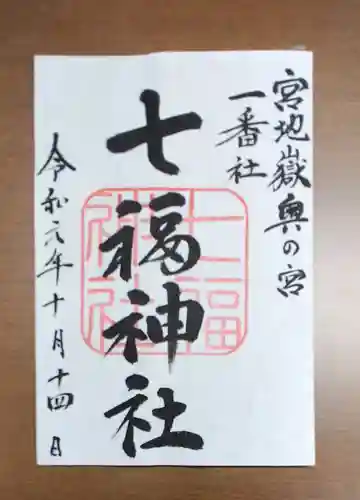 宮地嶽奥の宮
一番社
七福神社
七福神社
令和元年十月十四日